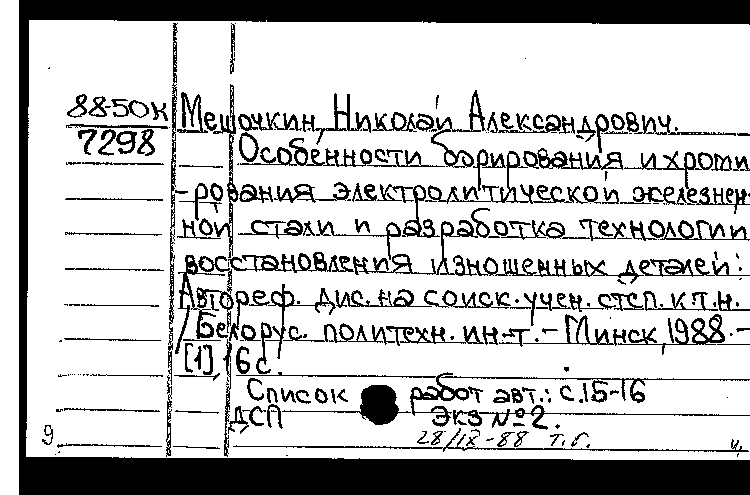 88-50К Мешочкин, Николай Александрович.
7298 Особенности борирования и хроми
-рования электролитической железнен-
ной стали и разработка технологии
восстановления изношенных деталей:
Автореф. дис. на соиск. учен. степ. к.т.н.
/Белорус. политехн. ин-т. – Минск, 1988. –
[1], 16 с.
Список работ авт.: с. 15-16
ДСП Экз №2.
9 28/IX-88 т.г. ч.